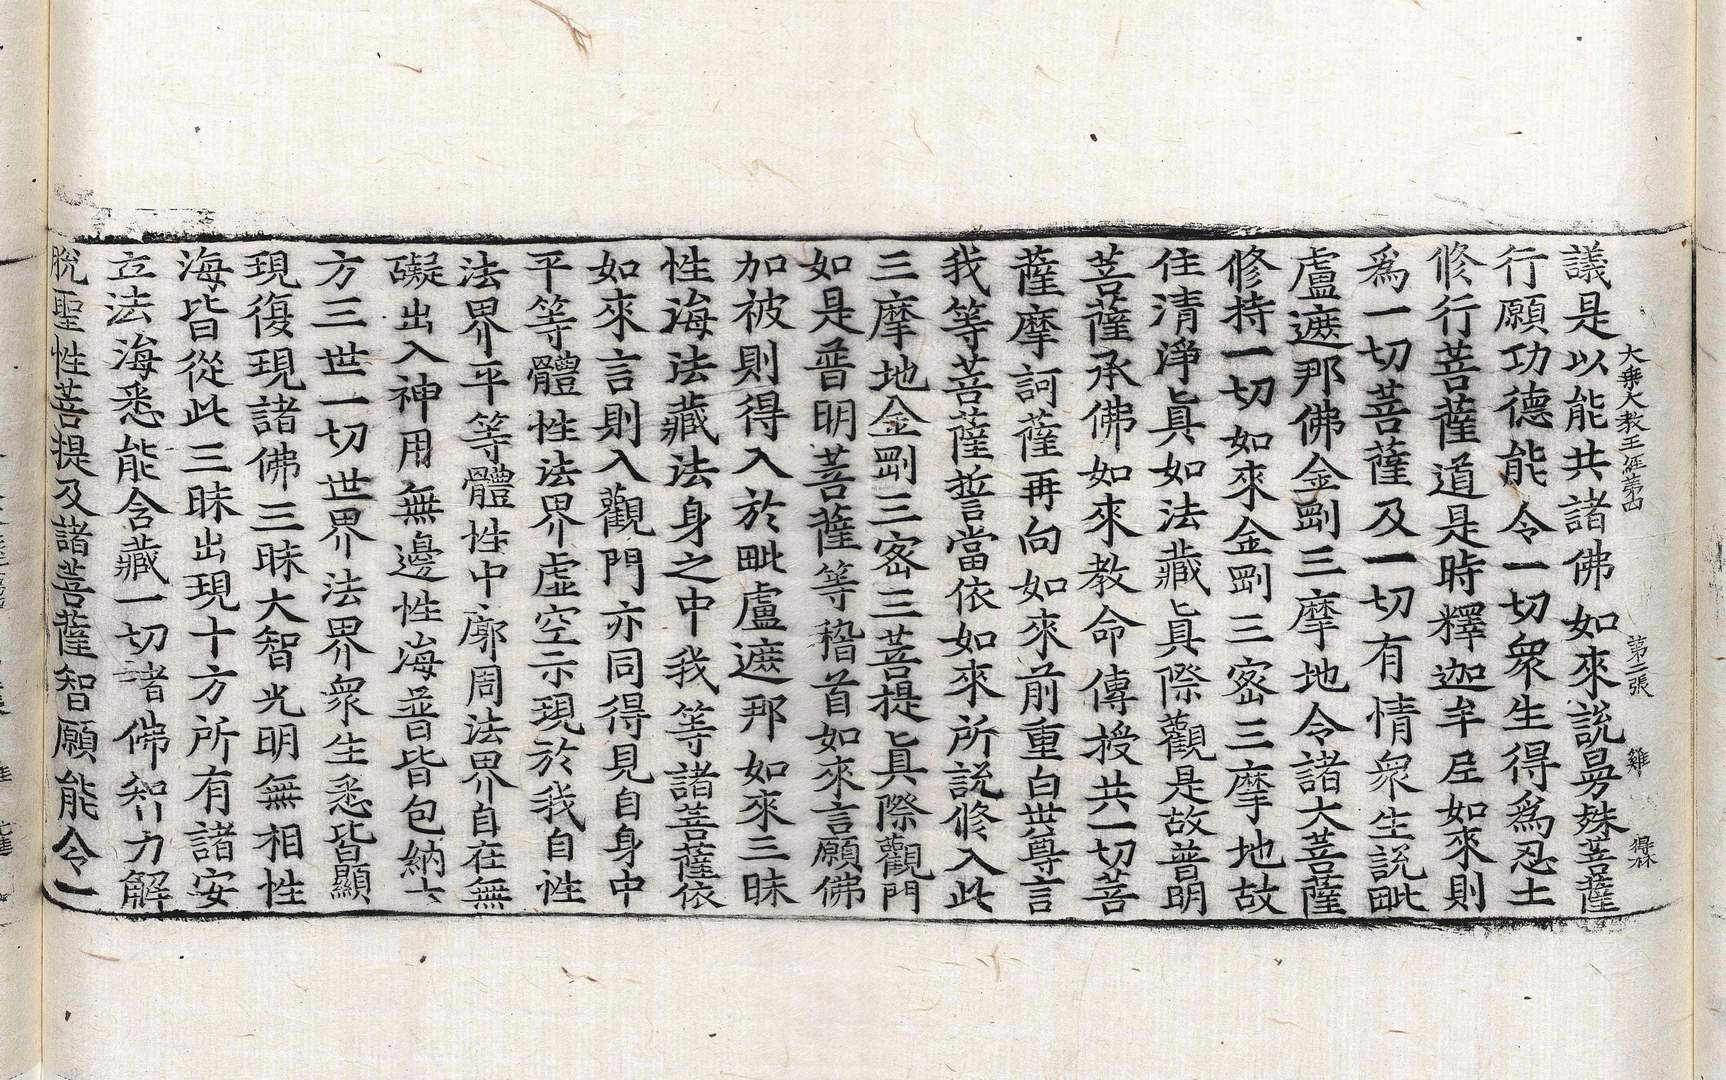 大乗大教王經第四 第二張 雞 得林
議是以能共諸佛如來說曼殊菩薩
行願功德能令一切衆生得爲忍土
修行菩薩道是時釋迦牟尼如來則
爲一切菩薩及一切有情衆生說毗
盧遮那佛金剛三摩地令諸大菩薩
修持一切如來金剛三密三摩地故
住清淨眞如法藏眞際觀是故普明
菩薩承佛如來教命傳授共一切菩
薩摩訶薩再向如來前重白世尊言
我等菩薩誓當依如來所說修入此
三摩地金剛三密三菩提眞際觀門
如是普明菩薩等稽首如來言願佛
加被則得入於毗盧遮那如來三昧
性海法藏法身之中我等諸菩薩依
如來言則入觀門亦同得見自身中
平等體性法界虛空示現於我自性
法界平等體性中廓周法界自在無
礙出入神用無邊性海普皆包納十
方三世一切世界法界衆生悉皆顯
現復現諸佛三昧大智光明無相性
海皆從此三昧出現十方所有諸安
立法海悉能含藏一切諸佛智力解
脫聖性菩提及諸菩薩智願能令一